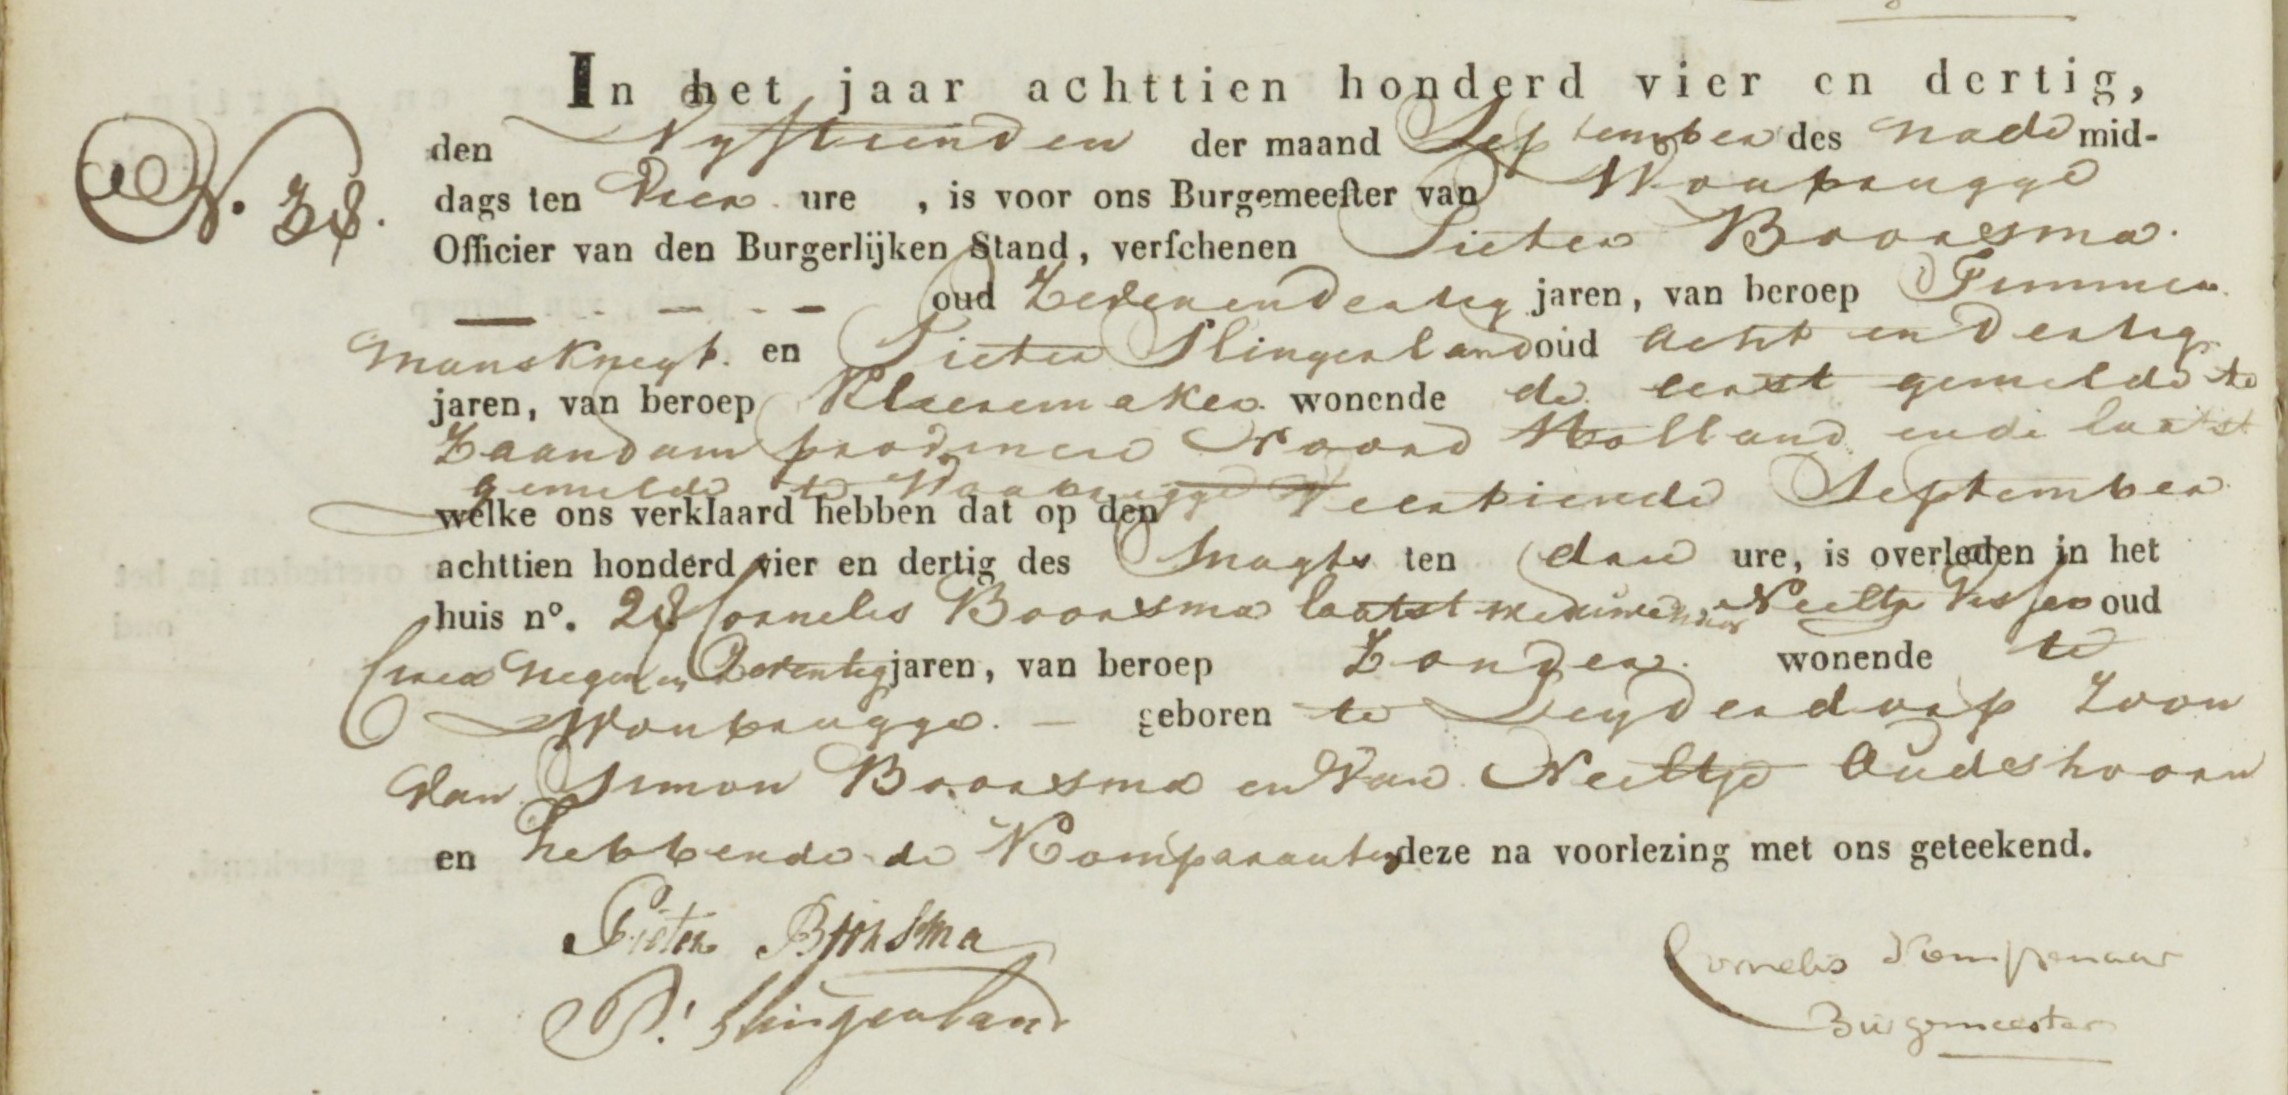 In het jaar achttien honderd vier en dertig,
N. 38.
den Vyftienden der maand September des Nade mid-
dags ten Vier ure , is voor ons Burgemeeſter van Woubrugge
Officier van den Burgerlijken Stand, verſchenen Pieter Boorsma.
oud Zevenendertig jaren, van beroep Timmer
mansknegt. en Pieter Slingerland oud acht en dertig
jaren, van beroep Kleeremaker. wonende de eerst gemelde te
Zaandam provincie Noord Holland en de laatst
gemelde te Woubrugge
welke ons verklaard hebben dat op den Veertiende September
achttien honderd vier en dertig des Snagts ten drie ure, is overleden in het
huis nº. 28 Cornelis Boorsma laatst weduwenaar Neeltje Visser oud
Circa Negen en Zeventig jaren, van beroep Zonder. wonende te
Woubrugge. — geboren te Leyderdorp Zoon
Van Simon Boorsma en Van Neeltje Oudshoorn
en hebbende de Komparanten deze na voorlezing met ons geteekend.
Pieter Boorsma
P. Slingerland
Cornelis Kempenaar
Burgemeester